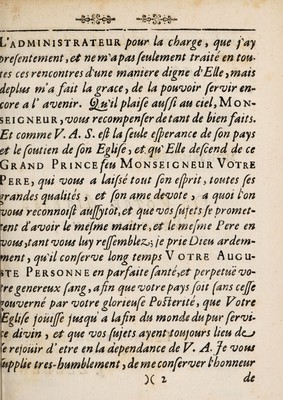 L'ADMINISTRATEUR pour la charge, que j'ay
presentement, et ne m'a pas seulement traité en tou-
tes ces rencontres d'une maniere digne d'Elle, mais
deplus m'a fait la grace, de la pouvoir servir en-
core a l' avenir. Qu'il plaise aussi au ciel, MON-
SEIGNEUR, vous recompenser de tant de bien faits.
Et comme V. A. S. est la seule esperance de son pays
et le soutien de son Eglise, et qu'Elle descend de ce
GRAND PRINCE feu MONSEIGNEUR VOTRE
PERE, qui vous a laissé tout son esprit, toutes ses
grandes qualités, et son ame devote, a quoi l'on
vous reconnoist aussytôt, et que vos sujets se promet-
tent d'avoir le mesme maitre, et le mesme Pere en
vous, tant vous luy ressemblez; je prie Dieu ardem-
ment, qu'il conserve long temps VOTRE AUGU-
STE PERSONNE en parfaite santé, et perpetüe vo-
tre genereux sang, afin que votre pays soit sans cesse
gouverné par votre glorieuse Posterité, que Votre
Eglise jouisse jusqu' a la fin du monde du pur servi-
ce divin, et que vos sujets ayent toujours lieu de
se rejouir d' etre en la dependance de V. A. Je vous
supplie tres-humblement, de me conserver l'honneur
)( 2 de